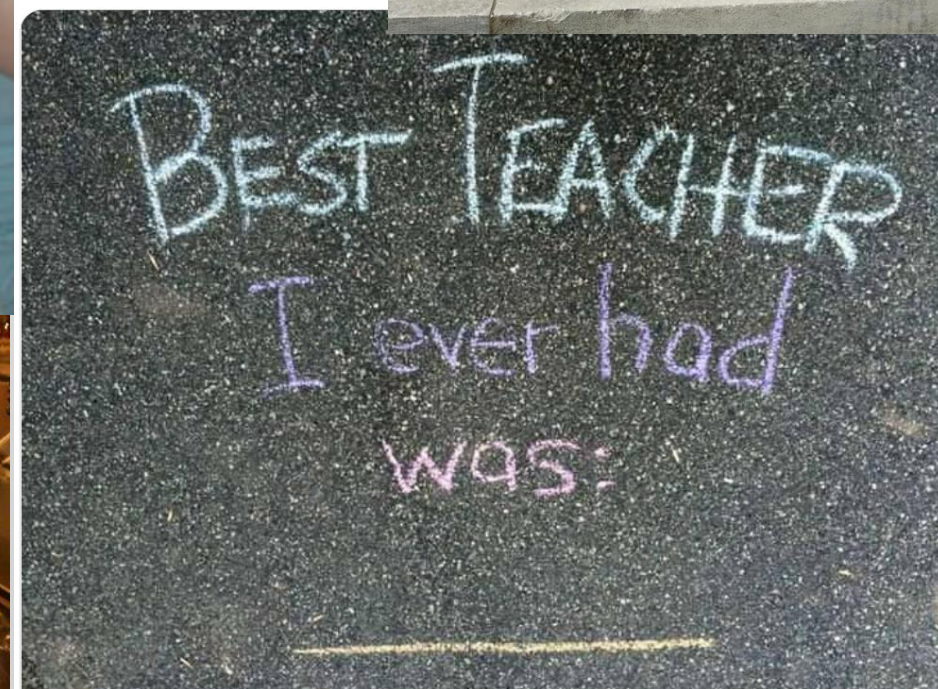 BEST TEACHER
I ever had
was: